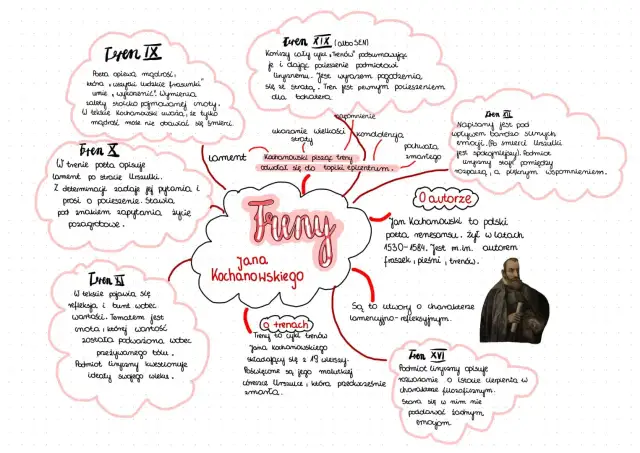 Tren IX
Poeta opiewa mądrość,
która „wszytki ludzkie frasunki"
umie „wykorzenić". Wymienia
zalety stoicko pojmowanej cnoty.
W tekście Kochanowski uważa, że tylko
mądrość może nie obawiać się śmierci.
Tren XIX (albo SEN)
Kończy cały cykl „Trenów" podsumowując
je i dając pocieszenie podmiotowi
lirycznemu. Jest wyrazem pogodzenia
się ze stratą. Tren jest pewnym pocieszeniem
dla bohatera
napomnienie
ukazanie wielkości
straty
kondolencja
pochwała
zmarłego
lament
Kochanowski pisząc treny
odwołał się do topiki epicentrum.
Tren X
W trenie poeta opisuje
lament po stracie Urszulki.
Z determinacją zadaje jej pytania i
prosi o pocieszenie. Stawia
pod znakiem zapytania życie
pozagrobowe.
Tren XII
Napisany jest pod
wpływem bardzo silnych
emocji. (Po śmierci Urszulki
jest spokojniejszy). Podmiot
liryczny staje pomiędzy
rozpaczą, a pięknym wspomnieniem.
Treny
Jana
Kochanowskiego
O autorze
Jan Kochanowski to polski
poeta renesansu. Żył w latach
1530-1584. Jest m.in. autorem
fraszek, pieśni, trenów.
Są to utwory o charakterze
lamencyjno-refleksyjnym.
Tren XI
W tekście pojawia się
refleksja i bunt wobec
wartości. Tematem jest
cnota, której wartość
została podważona wobec
przeżywanego bólu.
Podmiot liryczny kwestionuje
ideały swojego wieku.
o trenach
Treny to cykl trenów
Jana Kochanowskiego
składający się z 19 wierszy.
Poświęcone są jego malutkiej
córeczce Urszulce, która przedwcześnie
zmarła.
Tren XVI
Podmiot liryczny opisuje
rozważanie o istocie cierpienia w
charakterze filozoficznym.
Stara się w nim nie
poddawać żadnym
emocjom